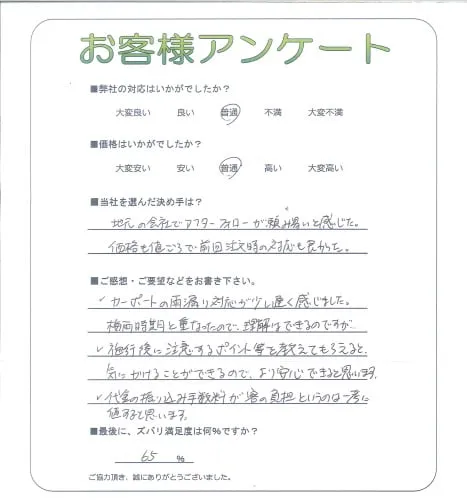 お客様アンケート
■弊社の対応はいかがでしたか？
大変良い 良い 普通 不満 大変不満
■価格はいかがでしたか？
大変安い 安い 普通 高い 大変高い
■当社を選んだ決め手は？
地元の会社でアフターフォローが頼み易いと感じた。
価格も値ごろで前回注文時の対応も良かった。
■ご感想・ご要望などをお書き下さい。
✓カーポートの雨漏り対応が少し遅く感じました。
梅雨時期と重なったので、理解はできるのですが
✓施行後に注意するポイント等を教えてもらえると、
気にかけることができるので、より安心できると思います。
✓代金の振り込み手数料が客の負担というのは一考に
値すると思います。
■最後に、ズバリ満足度は何%ですか？
65 %
ご協力頂き、誠にありがとうございました。